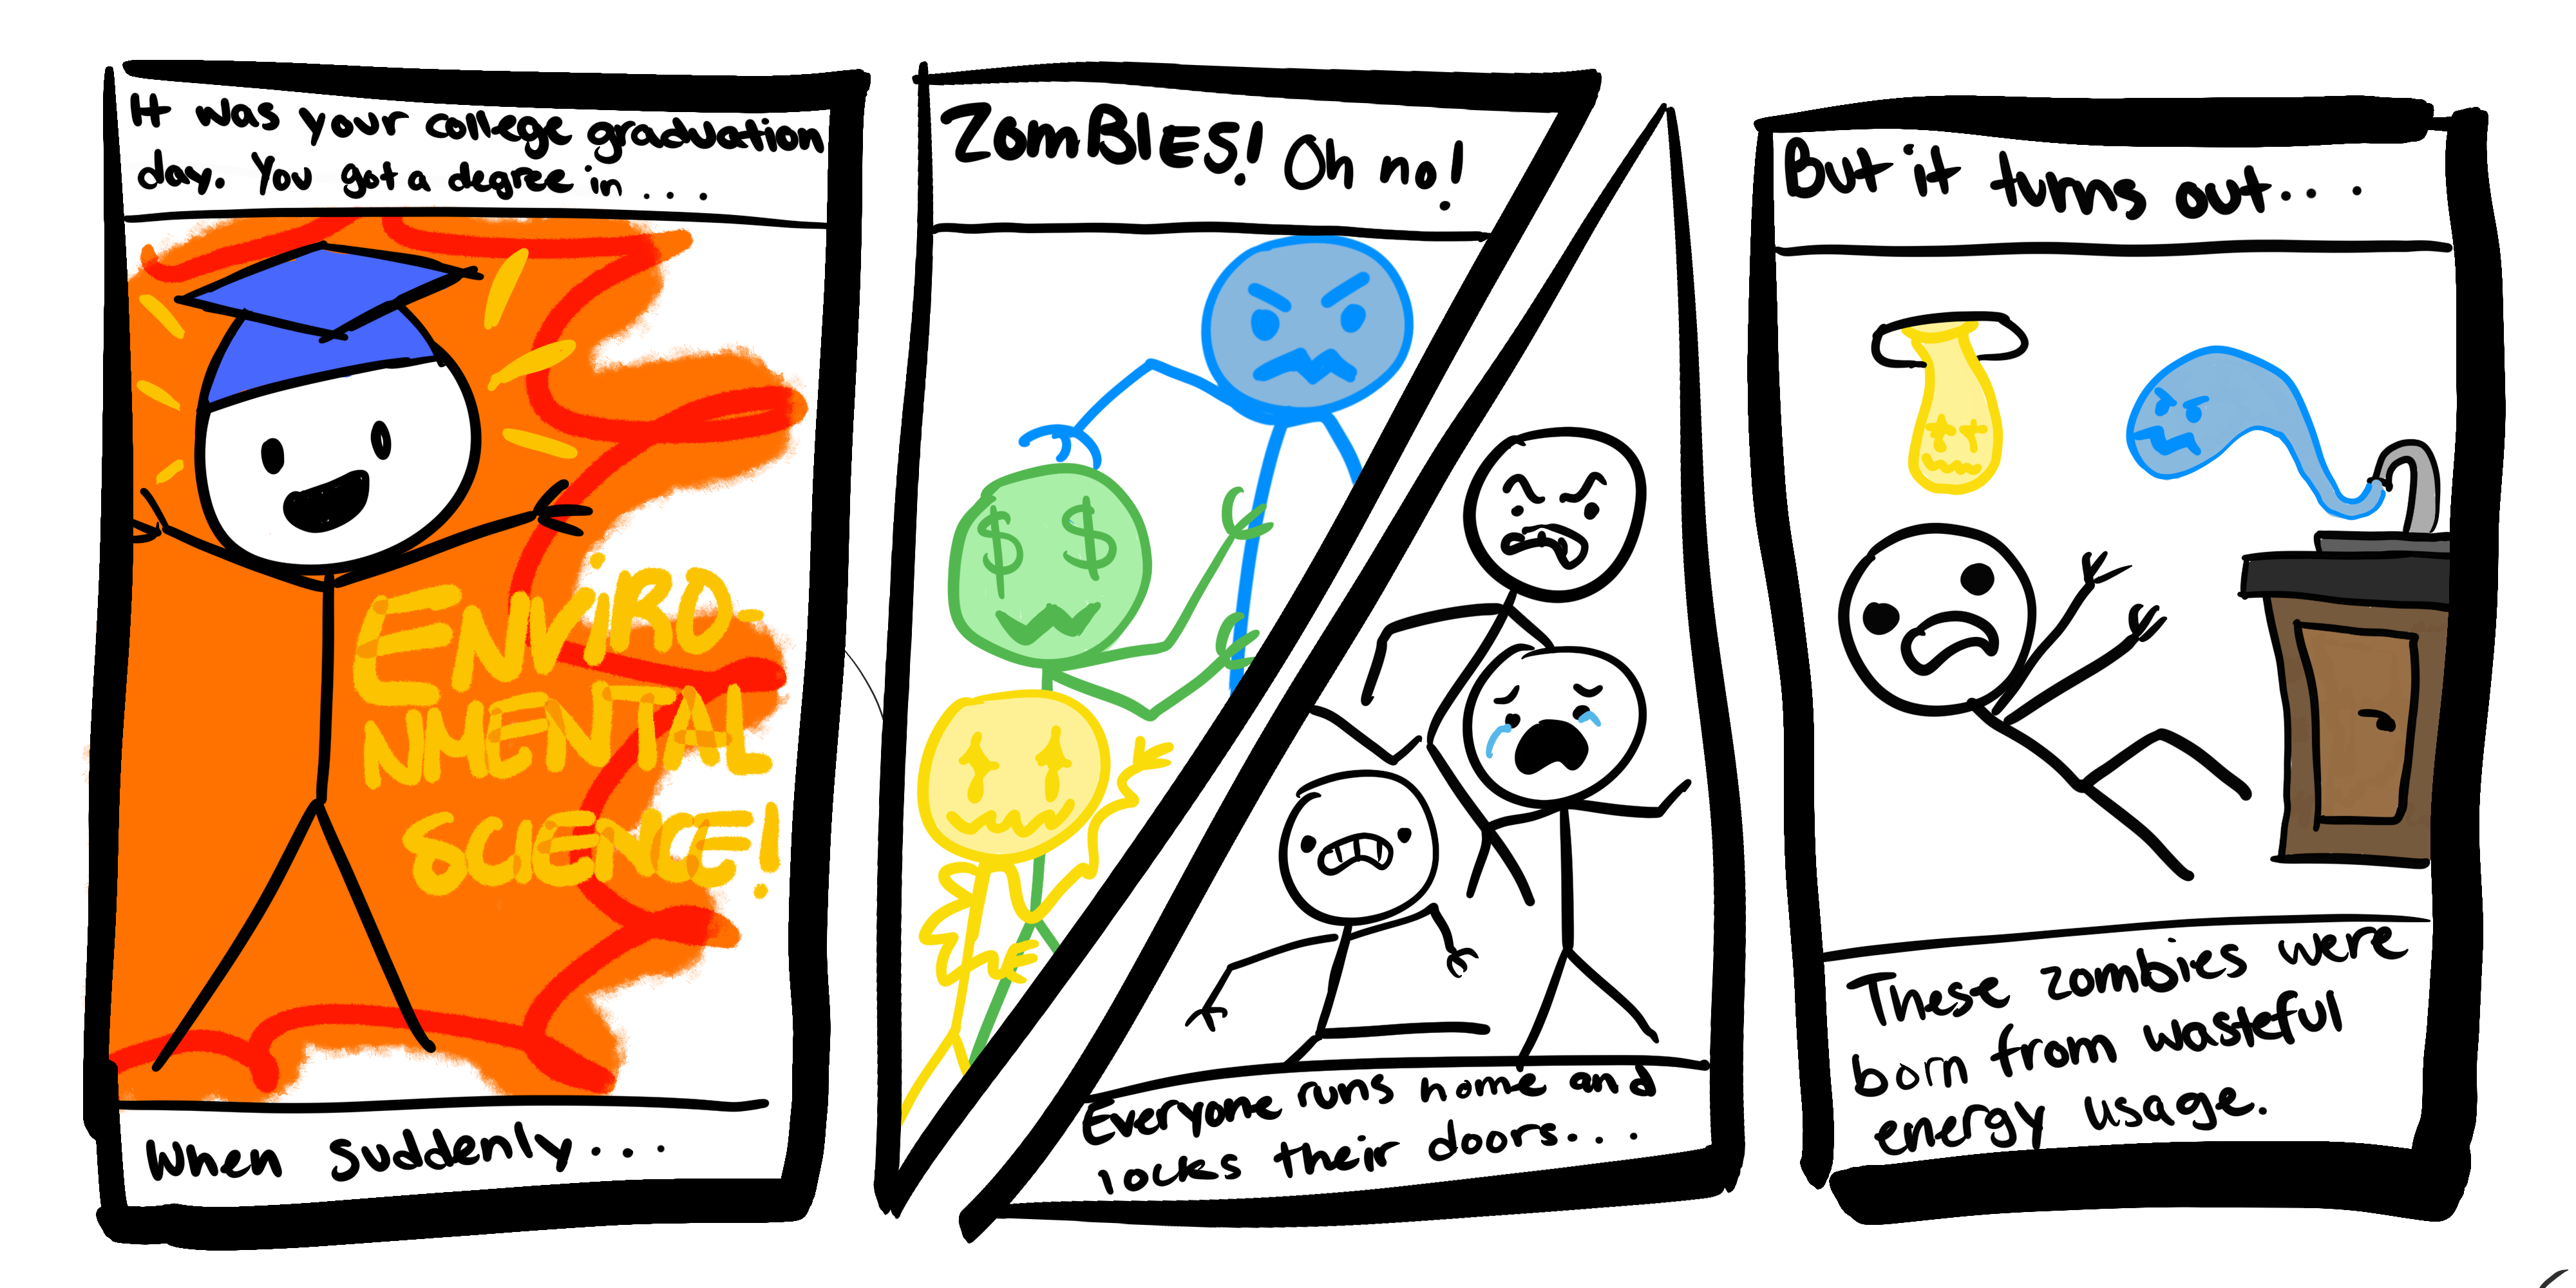 It was your college graduation
day. You got a degree in...
ENVIRO-
NMENTAL
SCIENCE!
When suddenly...
ZOMBIES! Oh no!
Everyone runs home and
locks their doors...
But it turns out...
These zombies were
born from wasteful
energy usage.